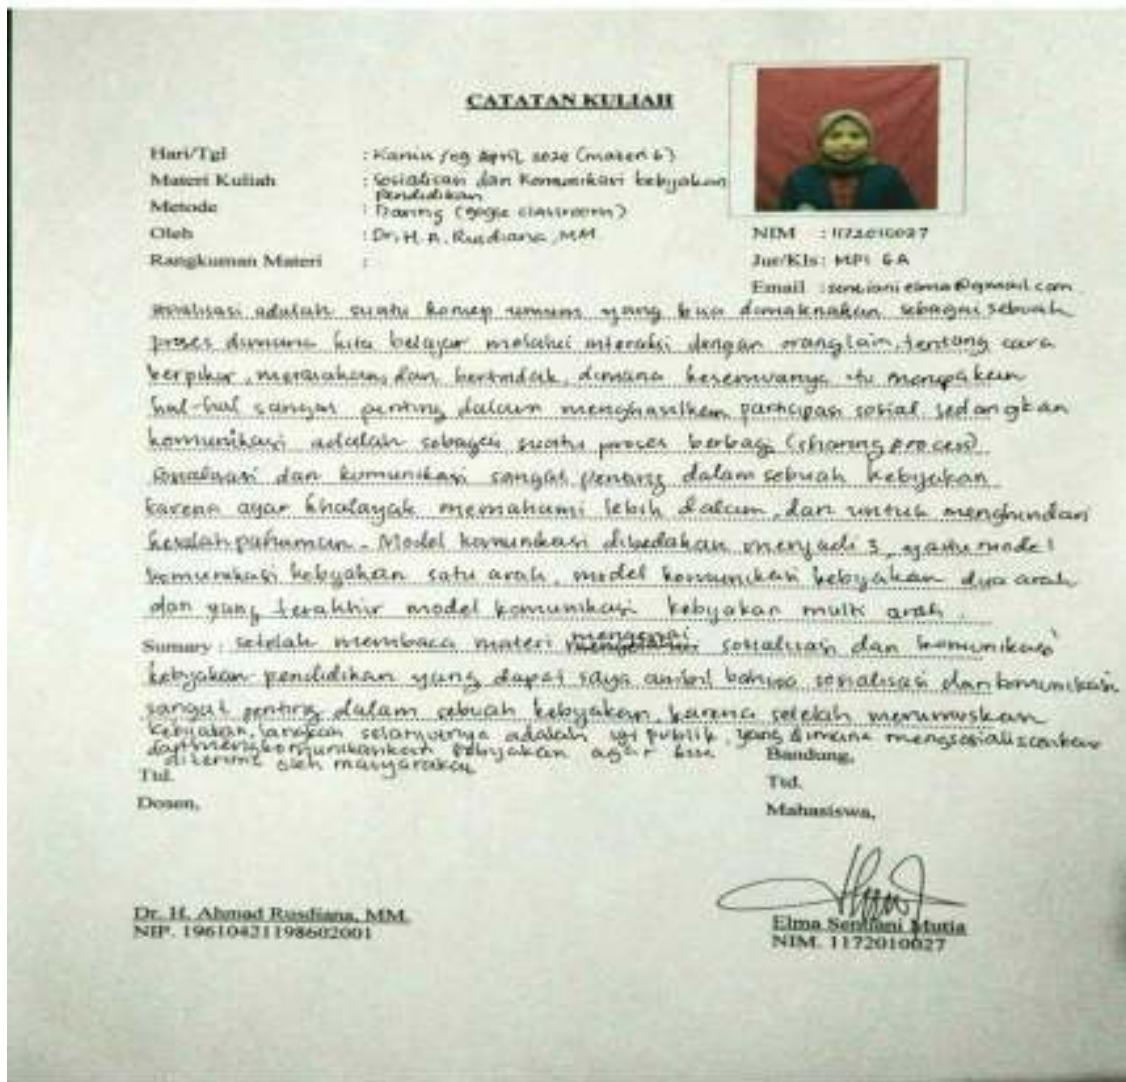 CATATAN KULIAH
Hari/Tgl : Kamis /09 April 2020 (materi 6)
Materi Kuliah : Sosialisasi dan Komunikasi kebijakan
pendidikan
Metode : Daring (gogle classroom)
Oleh : Dr. H. A. Rusdiana, MM
Rangkuman Materi :
NIM : 1172010027
Jur/Kls : MPI 6A
Email : sentiani elma@gmail.com
sosialisasi adalah suatu konsep umum yang bisa dimaknakan sebagai sebuah
proses dimana kita belajar melalui interaksi dengan orang lain, tentang cara
berpikir, merasakan, dan bertindak, dimana kesemuanya itu merupakan
hal-hal sangat penting dalam menghasilkan partisipasi sosial sedangkan
komunikasi adalah sebagai suatu proses berbagi (sharing process)
Sosialisasi dan komunikasi sangat penting dalam sebuah kebijakan
karena agar khalayak memahami lebih dalam, dan untuk menghindari
kesalahpahaman. Model komunikasi dibedakan menjadi 3, yaitu model
komunikasi kebijakan satu arah, model komunikasi kebijakan dua arah
dan yang terakhir model komunikasi kebijakan multi arah.
Sumary : setelah membaca materi mengenai sosialisasi dan komunikasi
kebijakan pendidikan yang dapat saya ambil bahwa sosialisasi dan komunikasi
sangat penting dalam sebuah kebijakan, karena setelah merumuskan
kebijakan, langkah selanjutnya adalah uji publik, yang dimana mensosialisasikan
dan mengkomunikasikan kebijakan agar bisa
diterima oleh masyarakat
Bandung,
Ttd. Ttd.
Dosen, Mahasiswa,
Dr. H. Ahmad Rusdiana, MM. Elma Sentiani Mutia
NIP. 19610421198602001 NIM. 1172010027